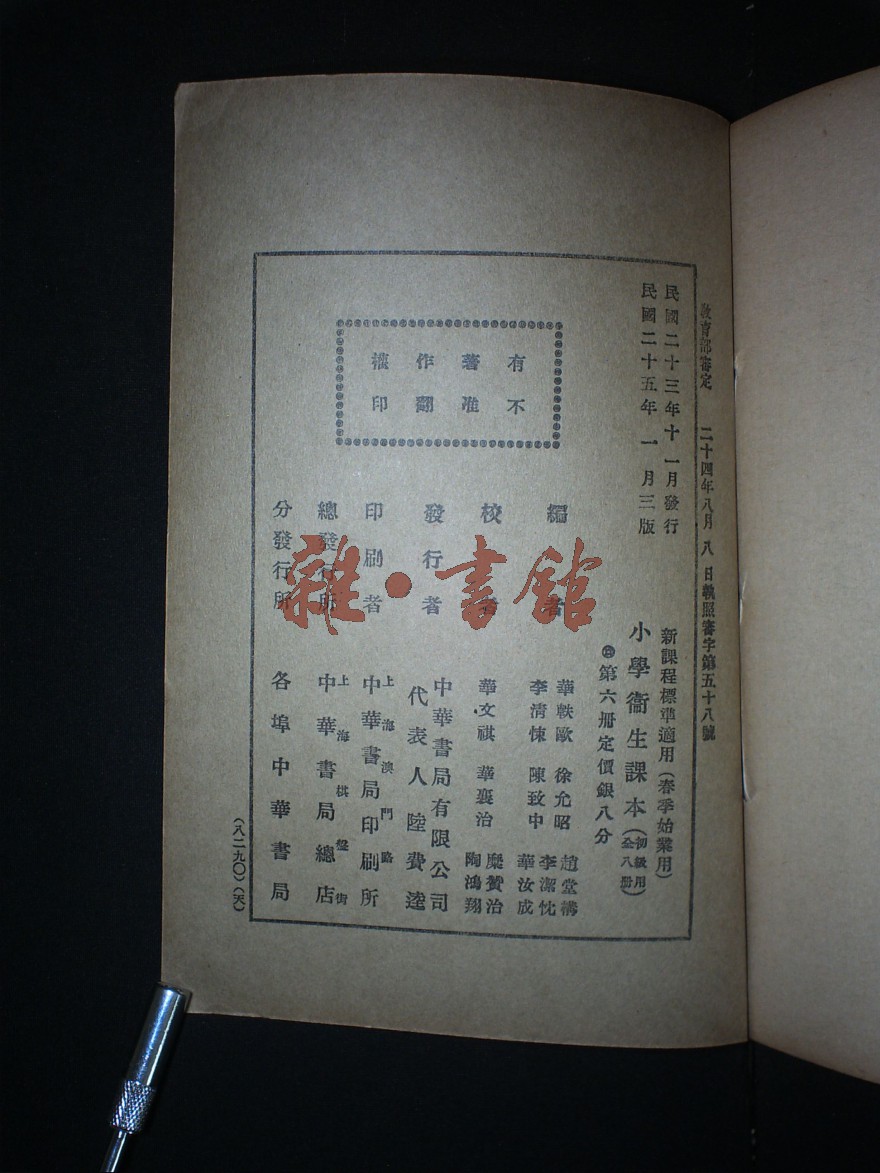 教育部審定　二十四年八月八日執照審字第五十八號
民國二十三年十一月發行
民國二十五年一月三版
新課程標準適用（春季始業用）
小學衞生課本（初級用全八册）
第六册定價銀八分
有著作權
不准翻印
編者
華軼歐　徐允昭　趙堂構
李清悚　陳致中　李潔忱
華汝成
校者
華文祺　華襄治　糜贊治
陶鴻翔
發行者
中華書局有限公司
代表人　陸費逵
印刷者
上海澳門路
中華書局印刷所
總發行所
上海棋盤街
中華書局總店
分發行所
各埠中華書局
（八二九〇）（天）
雜·書館